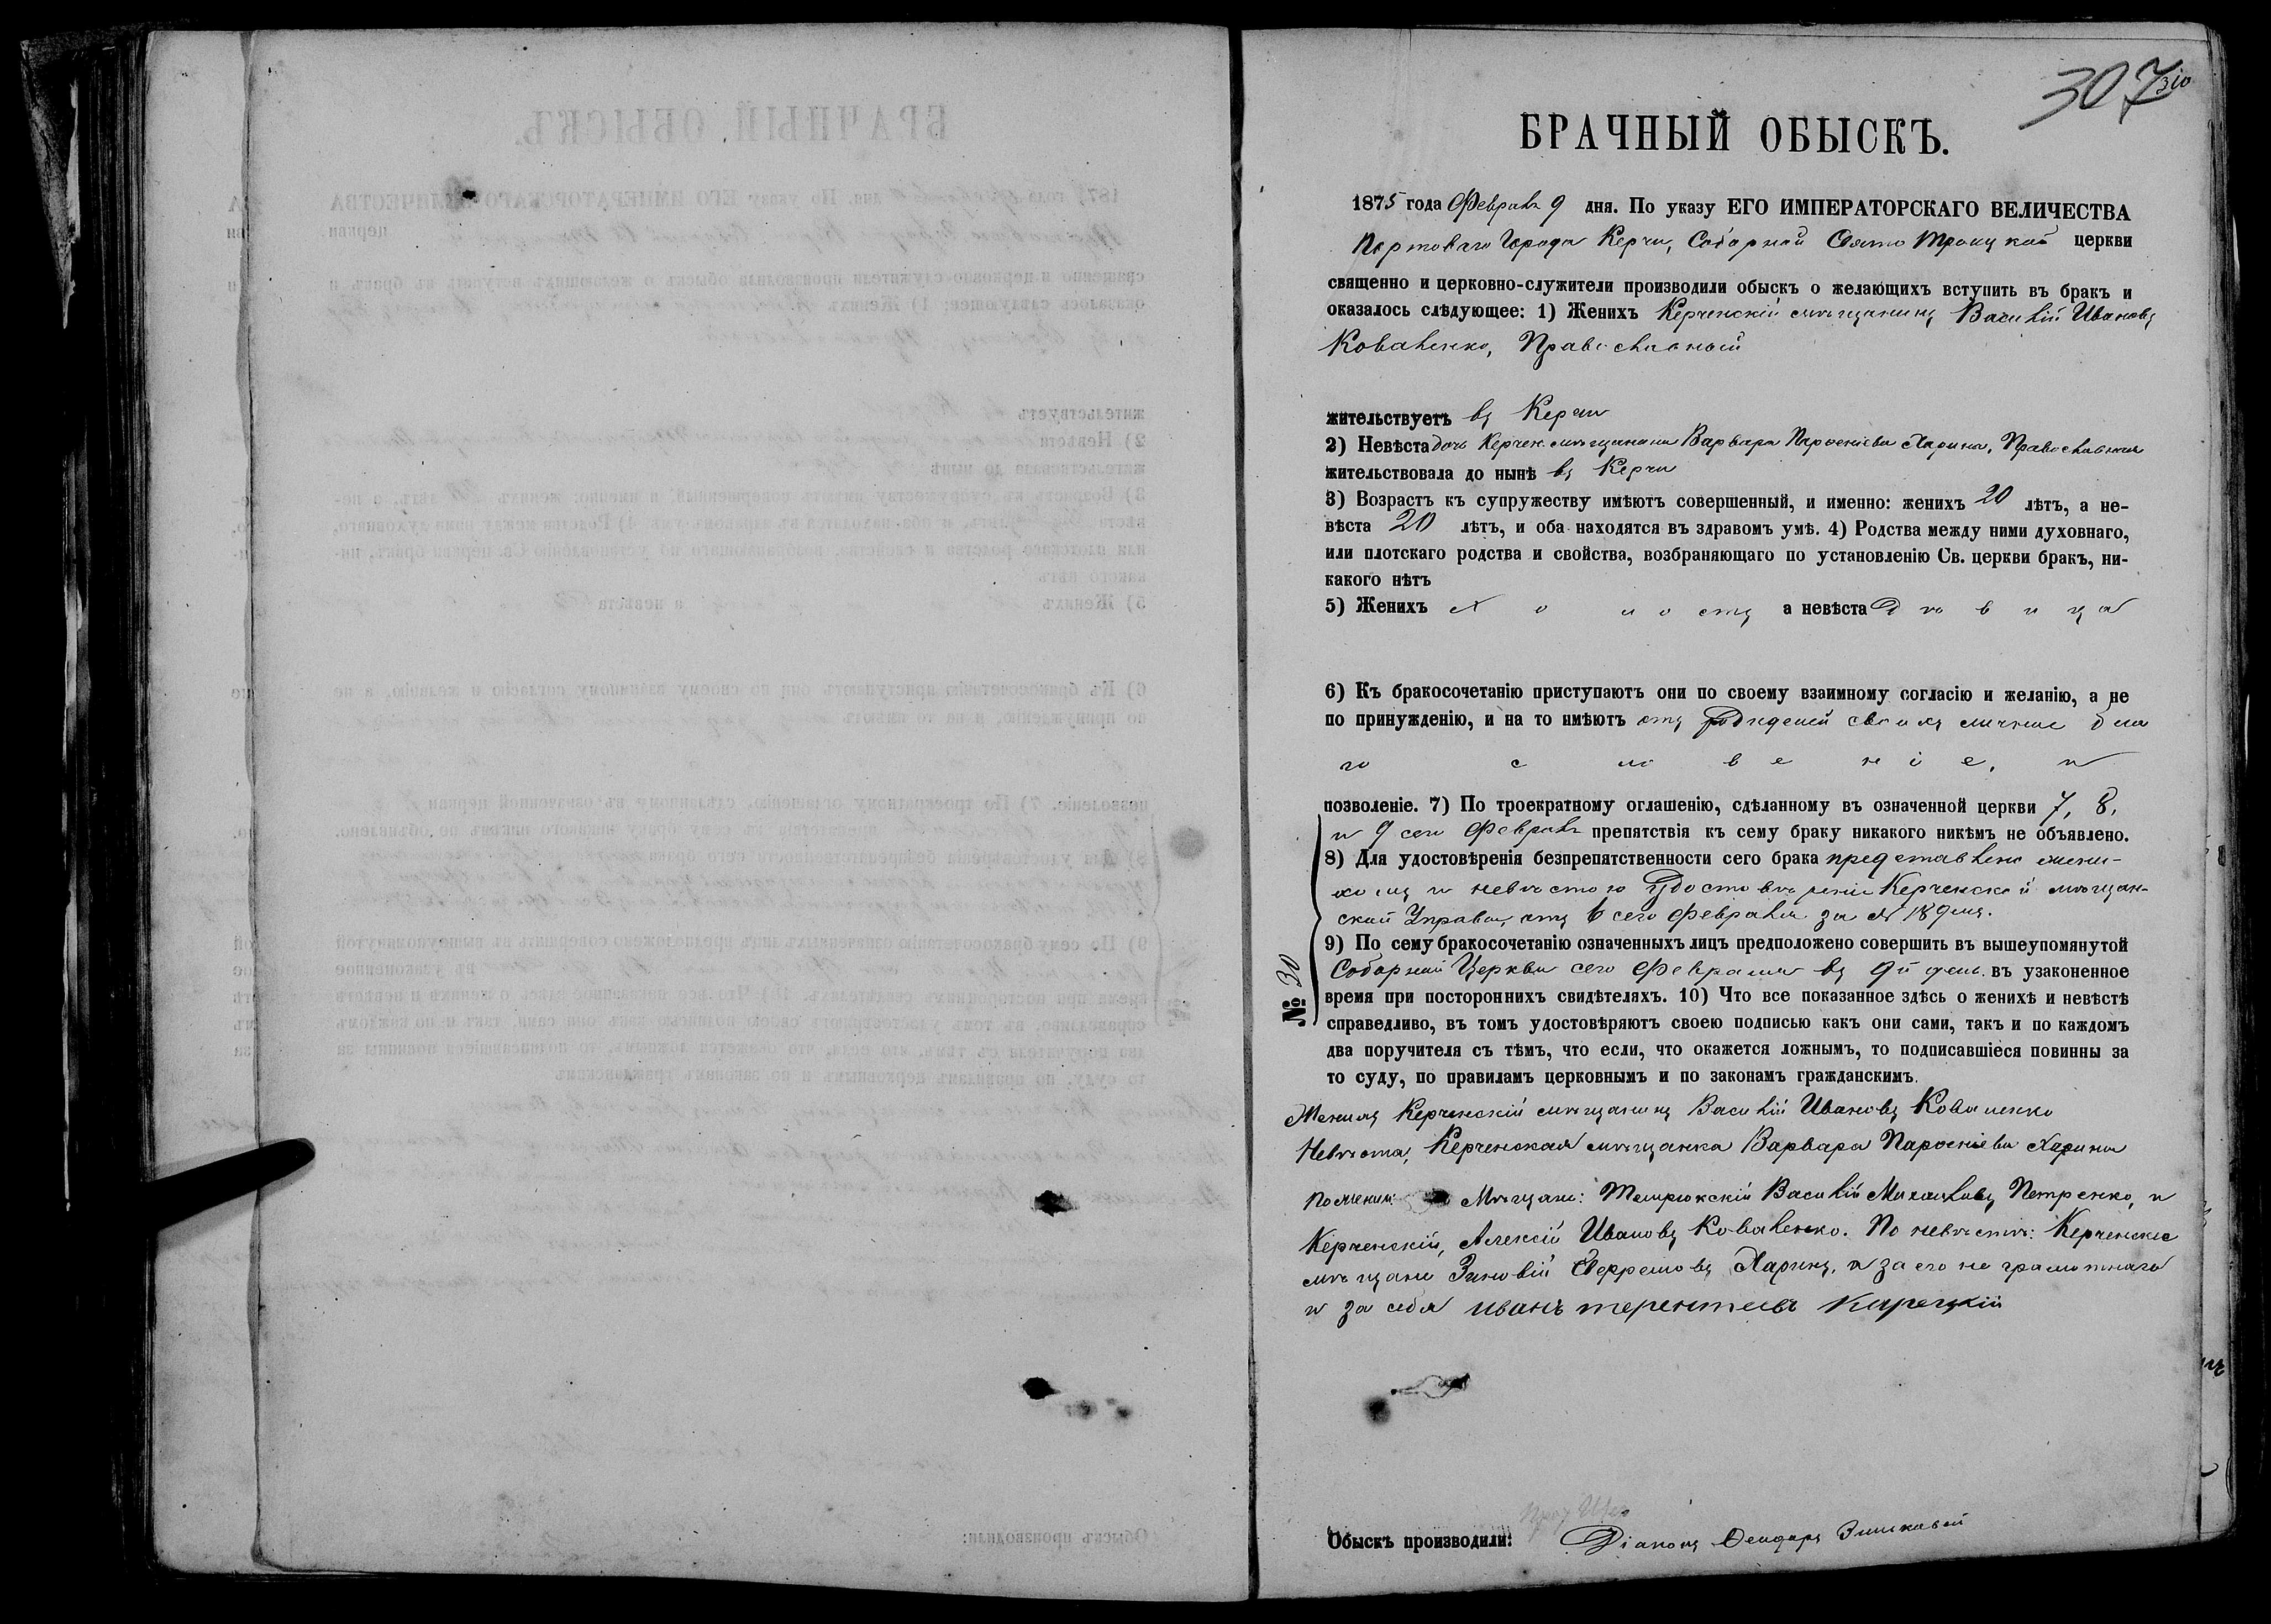 307
310
БРАЧНЫЙ ОБЫСКЪ.
1875 года Февраля 9 дня. По указу ЕГО ИМПЕРАТОРСКАГО ВЕЛИЧЕСТВА
Портоваго Города Керчи, Соборной Свято Троицкой церкви
священно и церковно-служители производили обыскъ о желающихъ вступить въ бракъ и
оказалось слѣдующее: 1) Женихъ Керченскій мѣщанинъ Василій Ивановъ
Коваленко, Православный
жительствуетъ въ Керчи
2) Невѣста дочь Керчен. мѣщанина Варвара Парѳеніева Харина, Православная
жительствовала до нынѣ въ Керчи
3) Возрастъ къ супружеству имѣютъ совершенный, и именно: женихъ 20 лѣтъ, а не-
вѣста 20 лѣтъ, и оба находятся въ здравомъ умѣ. 4) Родства между ними духовнаго,
или плотскаго родства и свойства, возбраняющаго по установленію Св. церкви бракъ, ни-
какого нѣтъ
5) Женихъ Холостъ а невѣста Дѣвица
6) Къ бракосочетанію приступаютъ они по своему взаимному согласію и желанію, а не
по принужденію, и на то имѣютъ отъ своихъ личные бла
гословеніе, и
позволеніе. 7) По троекратному оглашенію, сдѣланному въ означенной церкви 7, 8,
и 9 сего Февраля препятствія къ сему браку никакого никѣмъ не объявлено.
8) Для удостовѣренія безпрепятственности сего брака представлено жени-
хомъ и невѣстою Удостовѣреніе Керченской мѣщан-
ской Управы, отъ 6 сего Февраля за № 189мъ.
9) По сему бракосочетанію означенныхъ лицъ предположено совершить въ вышеупомянутой
Соборной Церкви сего Февраля въ 9й день. въ узаконенное
время при постороннихъ свидѣтеляхъ. 10) Что все показанное здѣсь о женихѣ и невѣстѣ
справедливо, въ томъ удостовѣряютъ своею подписью какъ они сами, такъ и по каждомъ
два поручителя съ тѣмъ, что если, что окажется ложнымъ, то подписавшіеся повинны за
то суду, по правиламъ церковнымъ и по законамъ гражданскимъ.
№ 30
Женихъ Керченскій мѣщанинъ Василій Ивановъ Коваленко
Невѣста, Керченская мѣщанка Варвара Парѳеніева Харина
По жених: Мѣщане: Темрюкскій Василій Михайловъ Петренко, и
Керченскій, Алексій Ивановъ Коваленко. По невѣстѣ: Керченскіе
мѣщане Зиновій Харинъ, а за его не грамотнаго
и за себя иванъ терентиевъ Карецкій
Обыскъ производили: Діаконъ